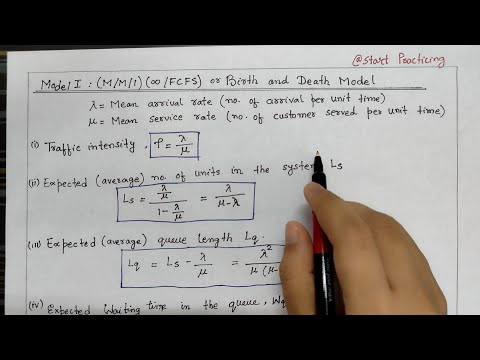 @Start Practicing
Model I : (M/M/1) (∞/FCFS) or Birth and Death Model
λ = Mean arrival rate (no. of arrival per unit time)
μ = Mean service rate (no. of customer served per unit time)
(i) Traffic intensity, ρ = λ/μ
(ii) Expected (average) no. of units in the system Ls
Ls = (λ/μ)/(1-λ/μ) = λ/(μ-λ)
(iii) Expected (average) queue length Lq.
Lq = Ls - λ/μ = λ²/μ(μ-
(iv) Expected Waiting time in the queue, Wq